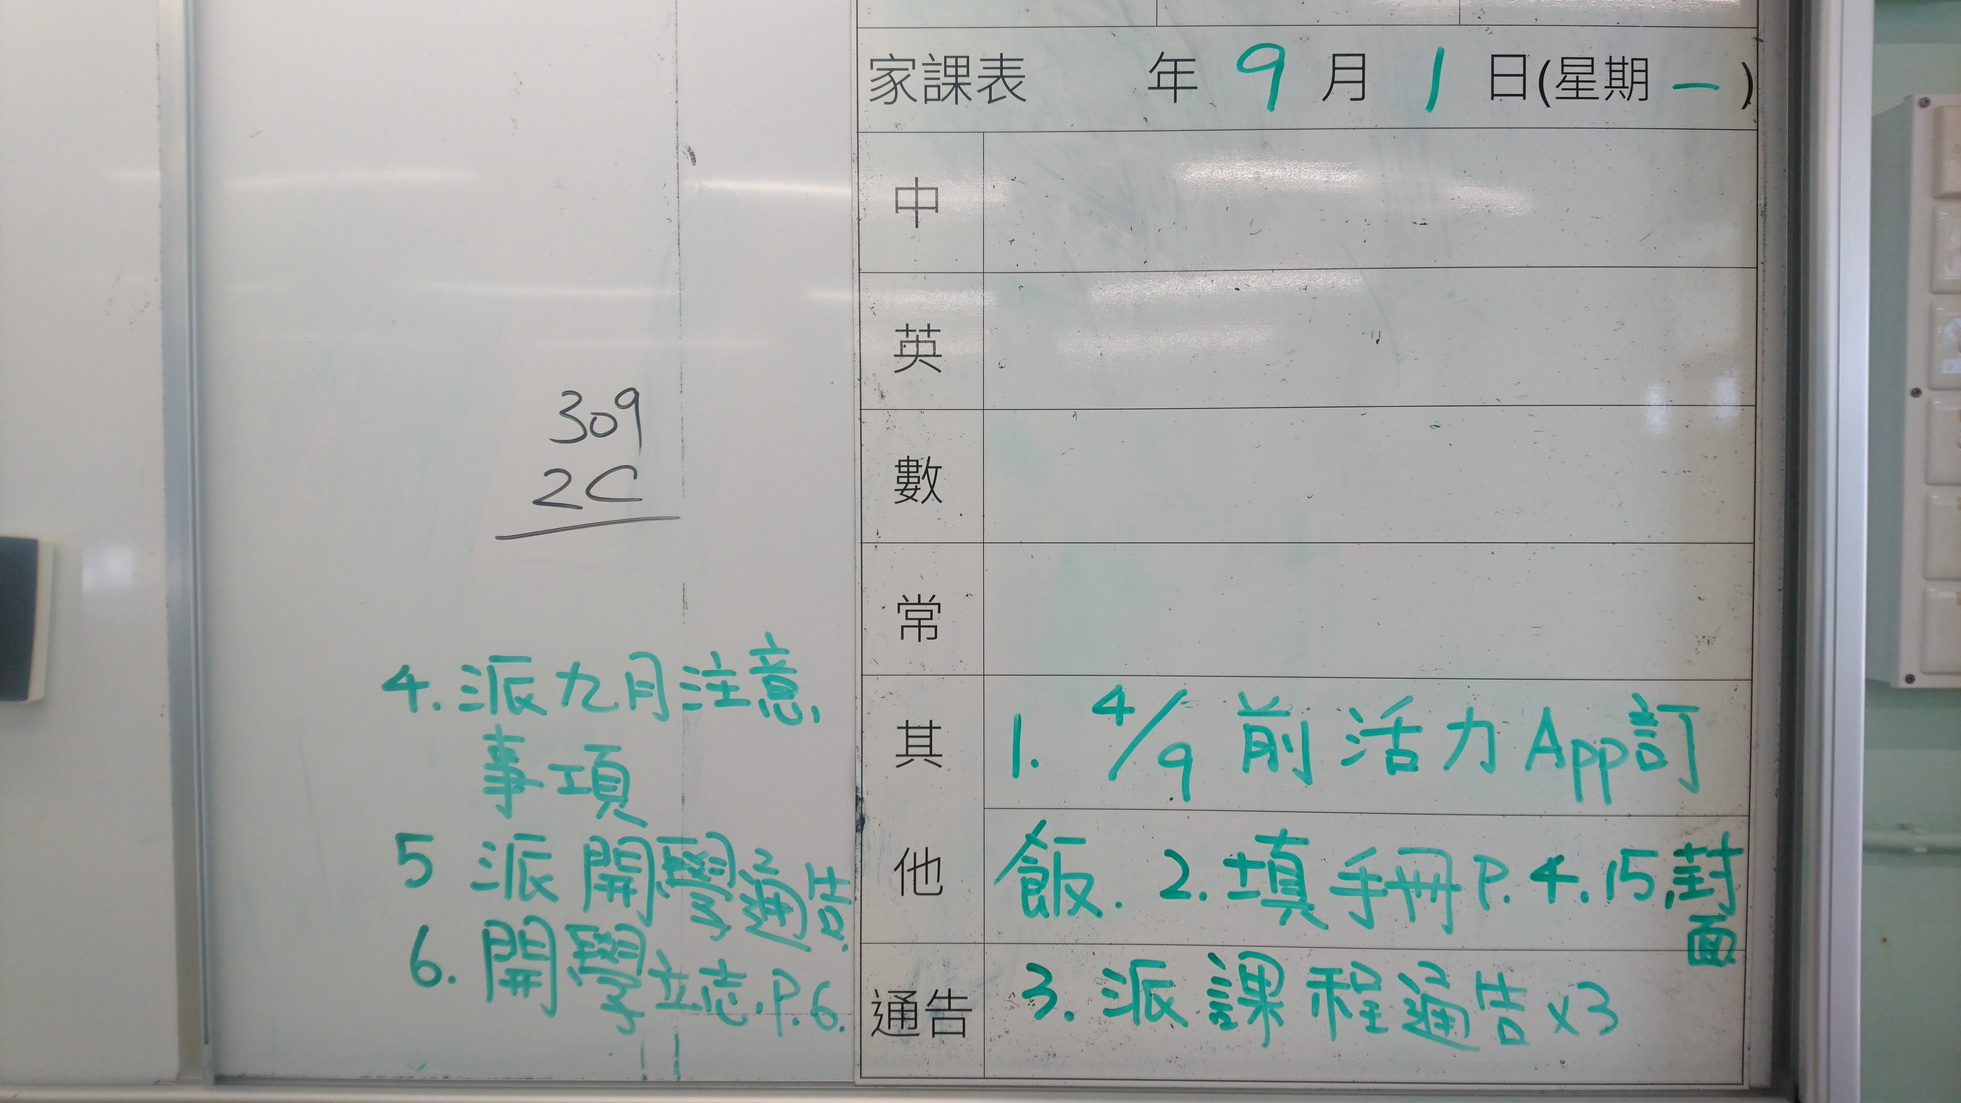 家課表 年 9 月 1 日(星期 一 )
中
英
數
常
其他
1. 4/9 前活力App訂
飯. 2. 填手冊P.4.15,封面
通告 3. 派課程通告x3
309
2C
4. 派九月注意
事項
5 派開學通告.
6. 開學立志.P.6.